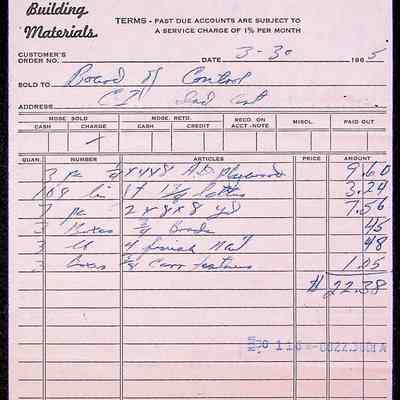 Building
Materials.
TERMS - PAST DUE ACCOUNTS ARE SUBJECT TO
A SERVICE CHARGE OF 1% PER MONTH
CUSTOMER'S
ORDER NO. DATE 3-30 1965
SOLD TO Board of Control
ADDRESS
MDSE. SOLD MDSE. RETD. REC'D. ON ACCT.-NOTE MISCL. PAID OUT
CASH CHARGE CASH CREDIT
X
QUAN. NUMBER ARTICLES PRICE AMOUNT
3 pc 1/4 4x4x8 AD Plywood 9.60
168 li 17 lattis 3.24
7 pc 2x8x8 yd 7.56
3 Boxes 3/4 Brads 45
3 lb 4 finish Nail 48
3 Boxes Corr fastners 1.05
$ 22.38